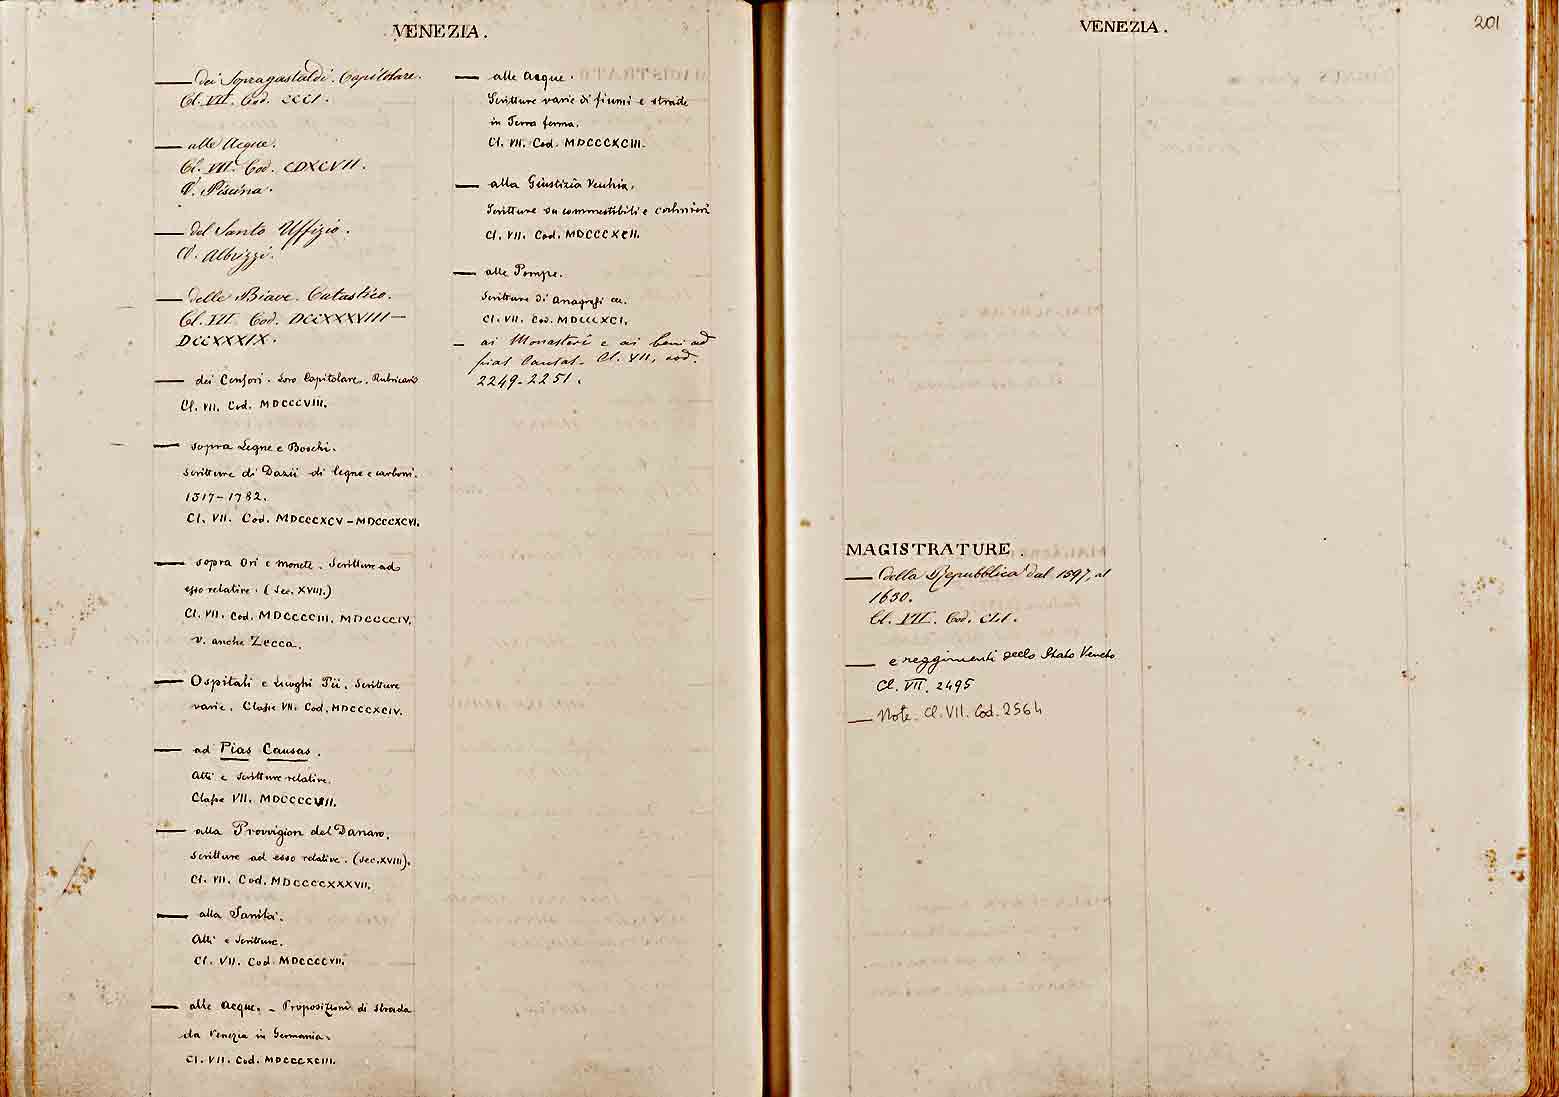 VENEZIA.
— dei Sopragastaldi. Capitolare.
Cl. VII. Cod. CCCI.
— alle Acque.
Cl. VII. Cod. CDXCVII.
V. Piscina.
— del Santo Uffizio.
V. Albizzi.
— delle Biave. Catastico.
Cl. VII. Cod. DCCXXXVIII—
DCCXXXIX.
— dei Censori. Loro Capitolare. Rubricario
Cl. VII. Cod. MDCCCVIII.
— sopra Legne e Boschi.
Scritture di Dazii di legne e carboni.
1517–1782.
Cl. VII. Cod. MDCCCXCV–MDCCCXCVI.
— sopra Ori e monete. Scritture ad
esso relative. (Sec. XVIII.)
Cl. VII. Cod. MDCCCCIII, MDCCCCIV.
v. anche Zecca.
— Ospitali e Luoghi Pii. Scritture
varie. Classe VII. Cod. MDCCCXCIV.
— ad Pias Causas.
Atti e Scritture relative.
Classe VII. MDCCCCVIII.
— alla Provvigion del Danaro.
Scritture ad esso relative. (Sec. XVIII).
Cl. VII. Cod. MDCCCCXXXVII.
— alla Sanità.
Atti e Scritture.
Cl. VII. Cod. MDCCCCVII.
— alle Acque. – Proposizioni di strada
da Venezia in Germania.
Cl. VII. Cod. MDCCCXCIII.
— alle Acque.
Scritture varie di fiumi e strade
in Terra ferma.
Cl. VII. Cod. MDCCCXCIII.
— alla Giustizia Vecchia.
Scritture su commestibili e calmieri
Cl. VII. Cod. MDCCCXCII.
— alle Pompe.
Scritture di Anagrafi ec.
Cl. VII. Cod. MDCCCXCI.
– ai Monasteri e ai beni ad
pias Causas. Cl. VII, cod.
2249-2251.
VENEZIA.
201
MAGISTRATURE.
— della Repubblica dal 1597, al
1630.
Cl. VII. Cod. CLI.
— e reggimenti dello Stato Veneto
Cl. VII. 2495
— Note. Cl. VII. Cod. 2564